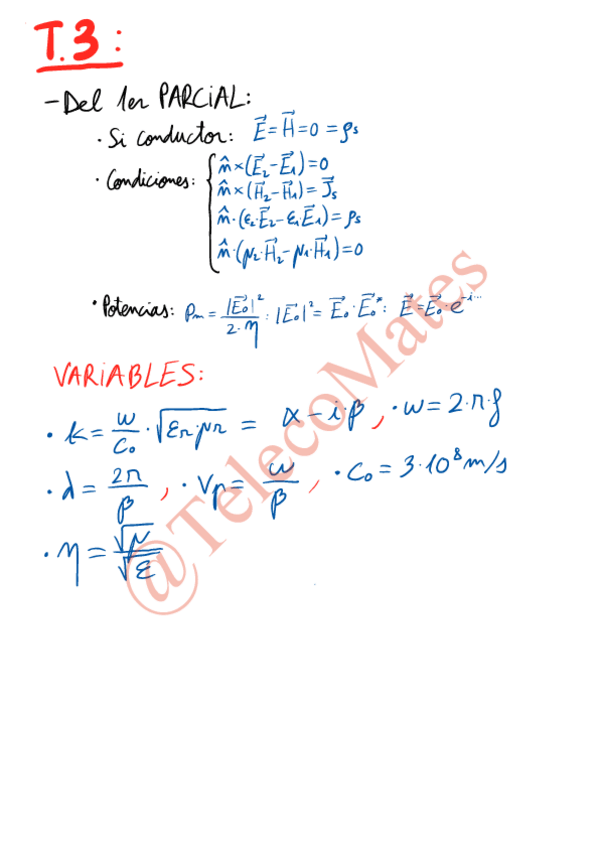 T.3:
- Del 1er PARCIAL:
· Si conductor: E⃗ = H⃗ = 0 = ρs
· Condiciones: { n̂×(E⃗₂-E⃗₁)=0
n̂×(H⃗₂-H⃗₁)=J⃗s
n̂·(ε₂·E⃗₂-ε₁·E⃗₁)=ρs
n̂·(μ₂·H⃗₂-μ₁·H⃗₁)=0
· Potencias: Pm = |E⃗o|²/2·η : |E⃗o|² = E⃗o·E⃗o*: E⃗=E⃗o·e^-i...
VARIABLES:
· k = ω/Co · √εr·μr = α - i·β, · ω = 2·π·f
· λ = 2π/β, · Vp = ω/β, · Co = 3·10⁸ m/s
· η = √μ/√ε
@TelecoMates